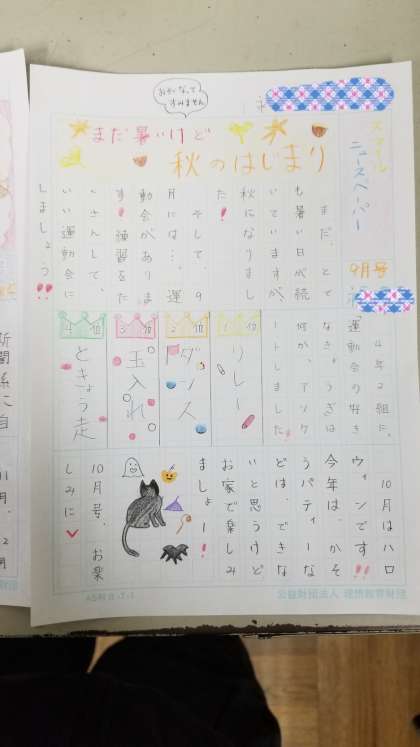 おそくなって
すみません
スマイル
ニュースペーパー
9月号
まだ暑いけど
秋のはじまり
まだ、とて
も暑い日が続
いていますが
秋になりまし
た!
そして、9
月には…、運
動会がありま
す!練習をた
くさんして、
いい運動会に
しましょう!!
4年2組に、
運動会の好き
なきょうぎは
何か、アンケ
ートしました。
1位
リレー
2位
ダンス
3位
玉入れ
4位
ときょう走
10月はハロ
ウィンです!!
今年は、かそ
うパティーな
どは、できな
いと思うけど
お家で楽しみ
ましょー!!
10月号、お楽
しみに
新聞係
に自
11月
公益財団法人 理想教育財団